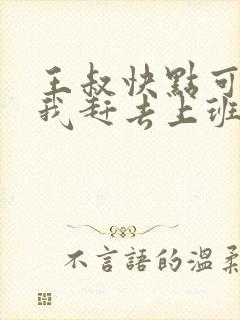 王叔快點可
我赶去上班
不言語的温柔